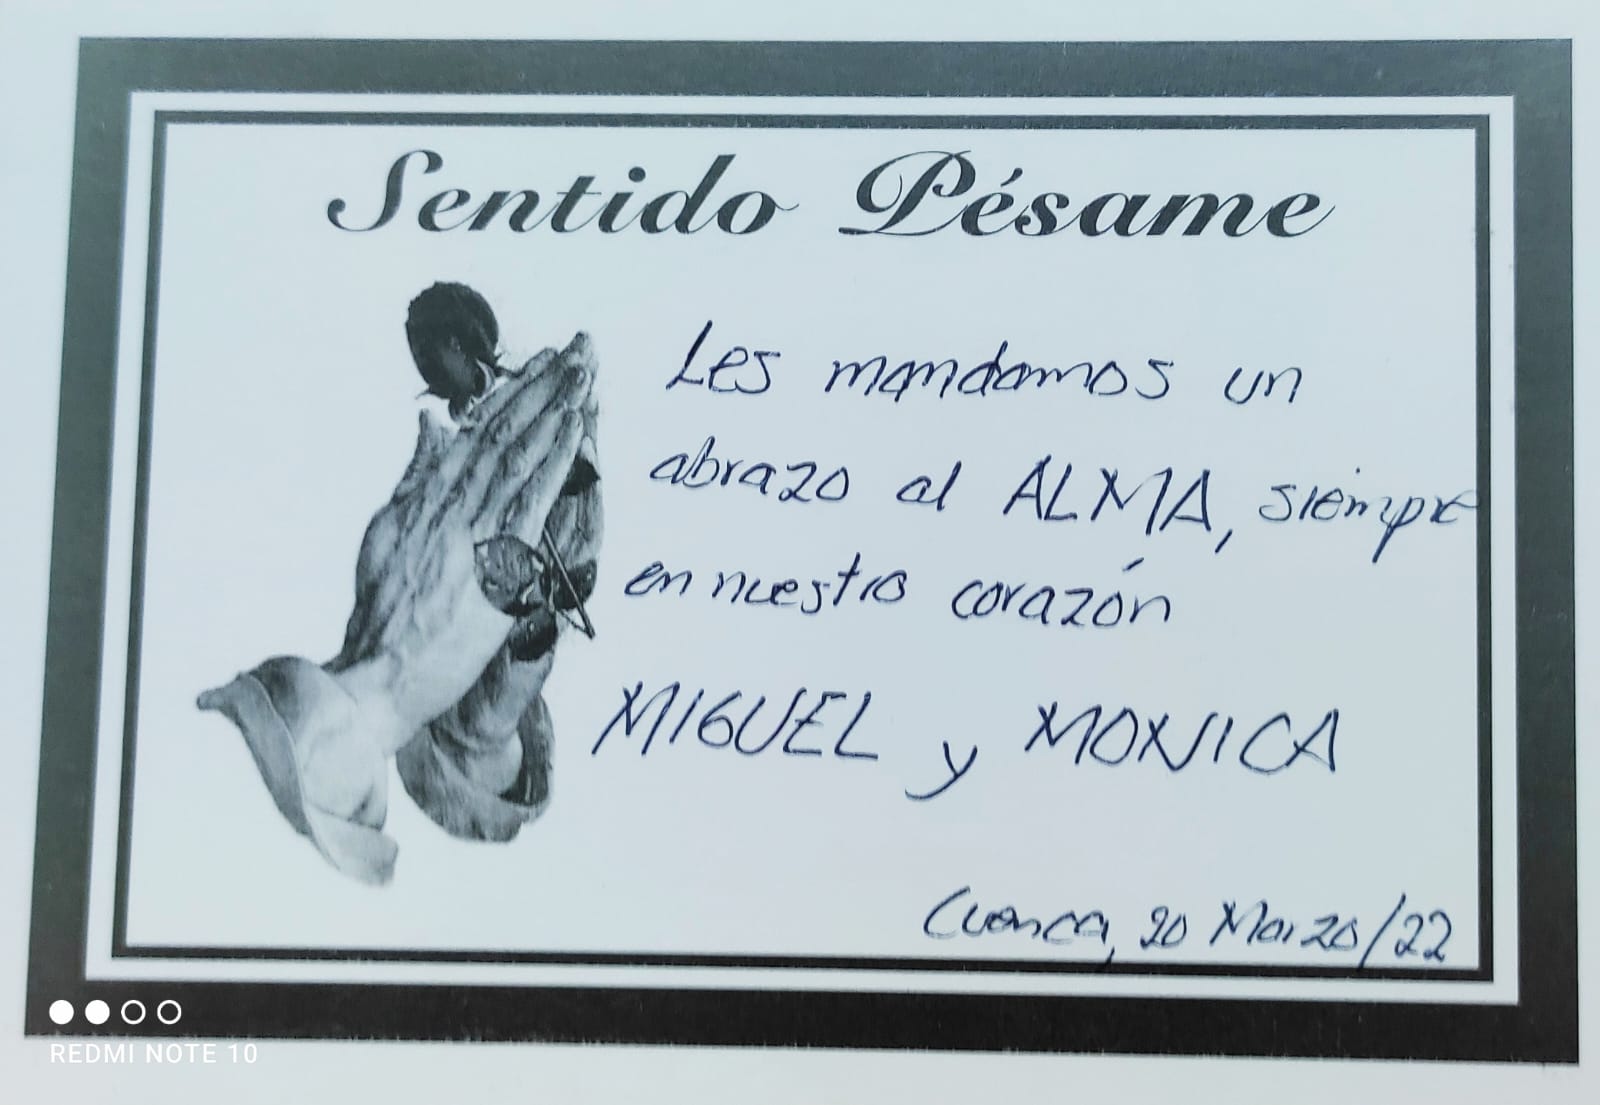 Sentido Pésame
Les mandamos un
abrazo al ALMA, siempre
en nuestro corazón
MIGUEL y MONICA
Cuenca, 20 Marzo/22
REDMI NOTE 10